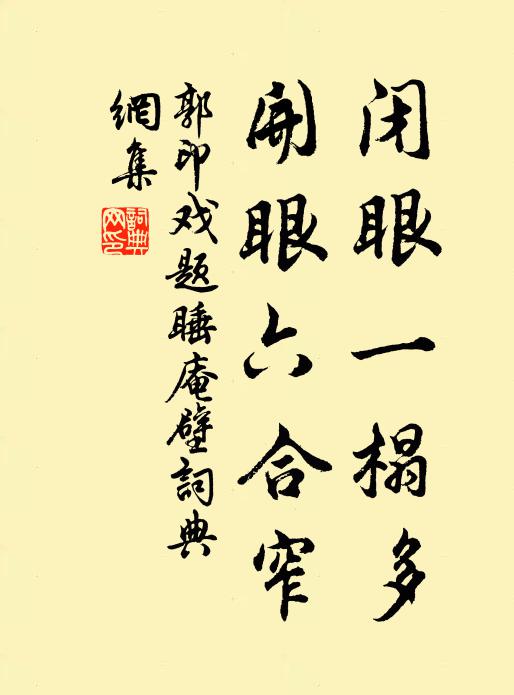 闭眼一榻多
開眼六合窄
郭印戏题睡庵壁詞典
網集
詞典网印